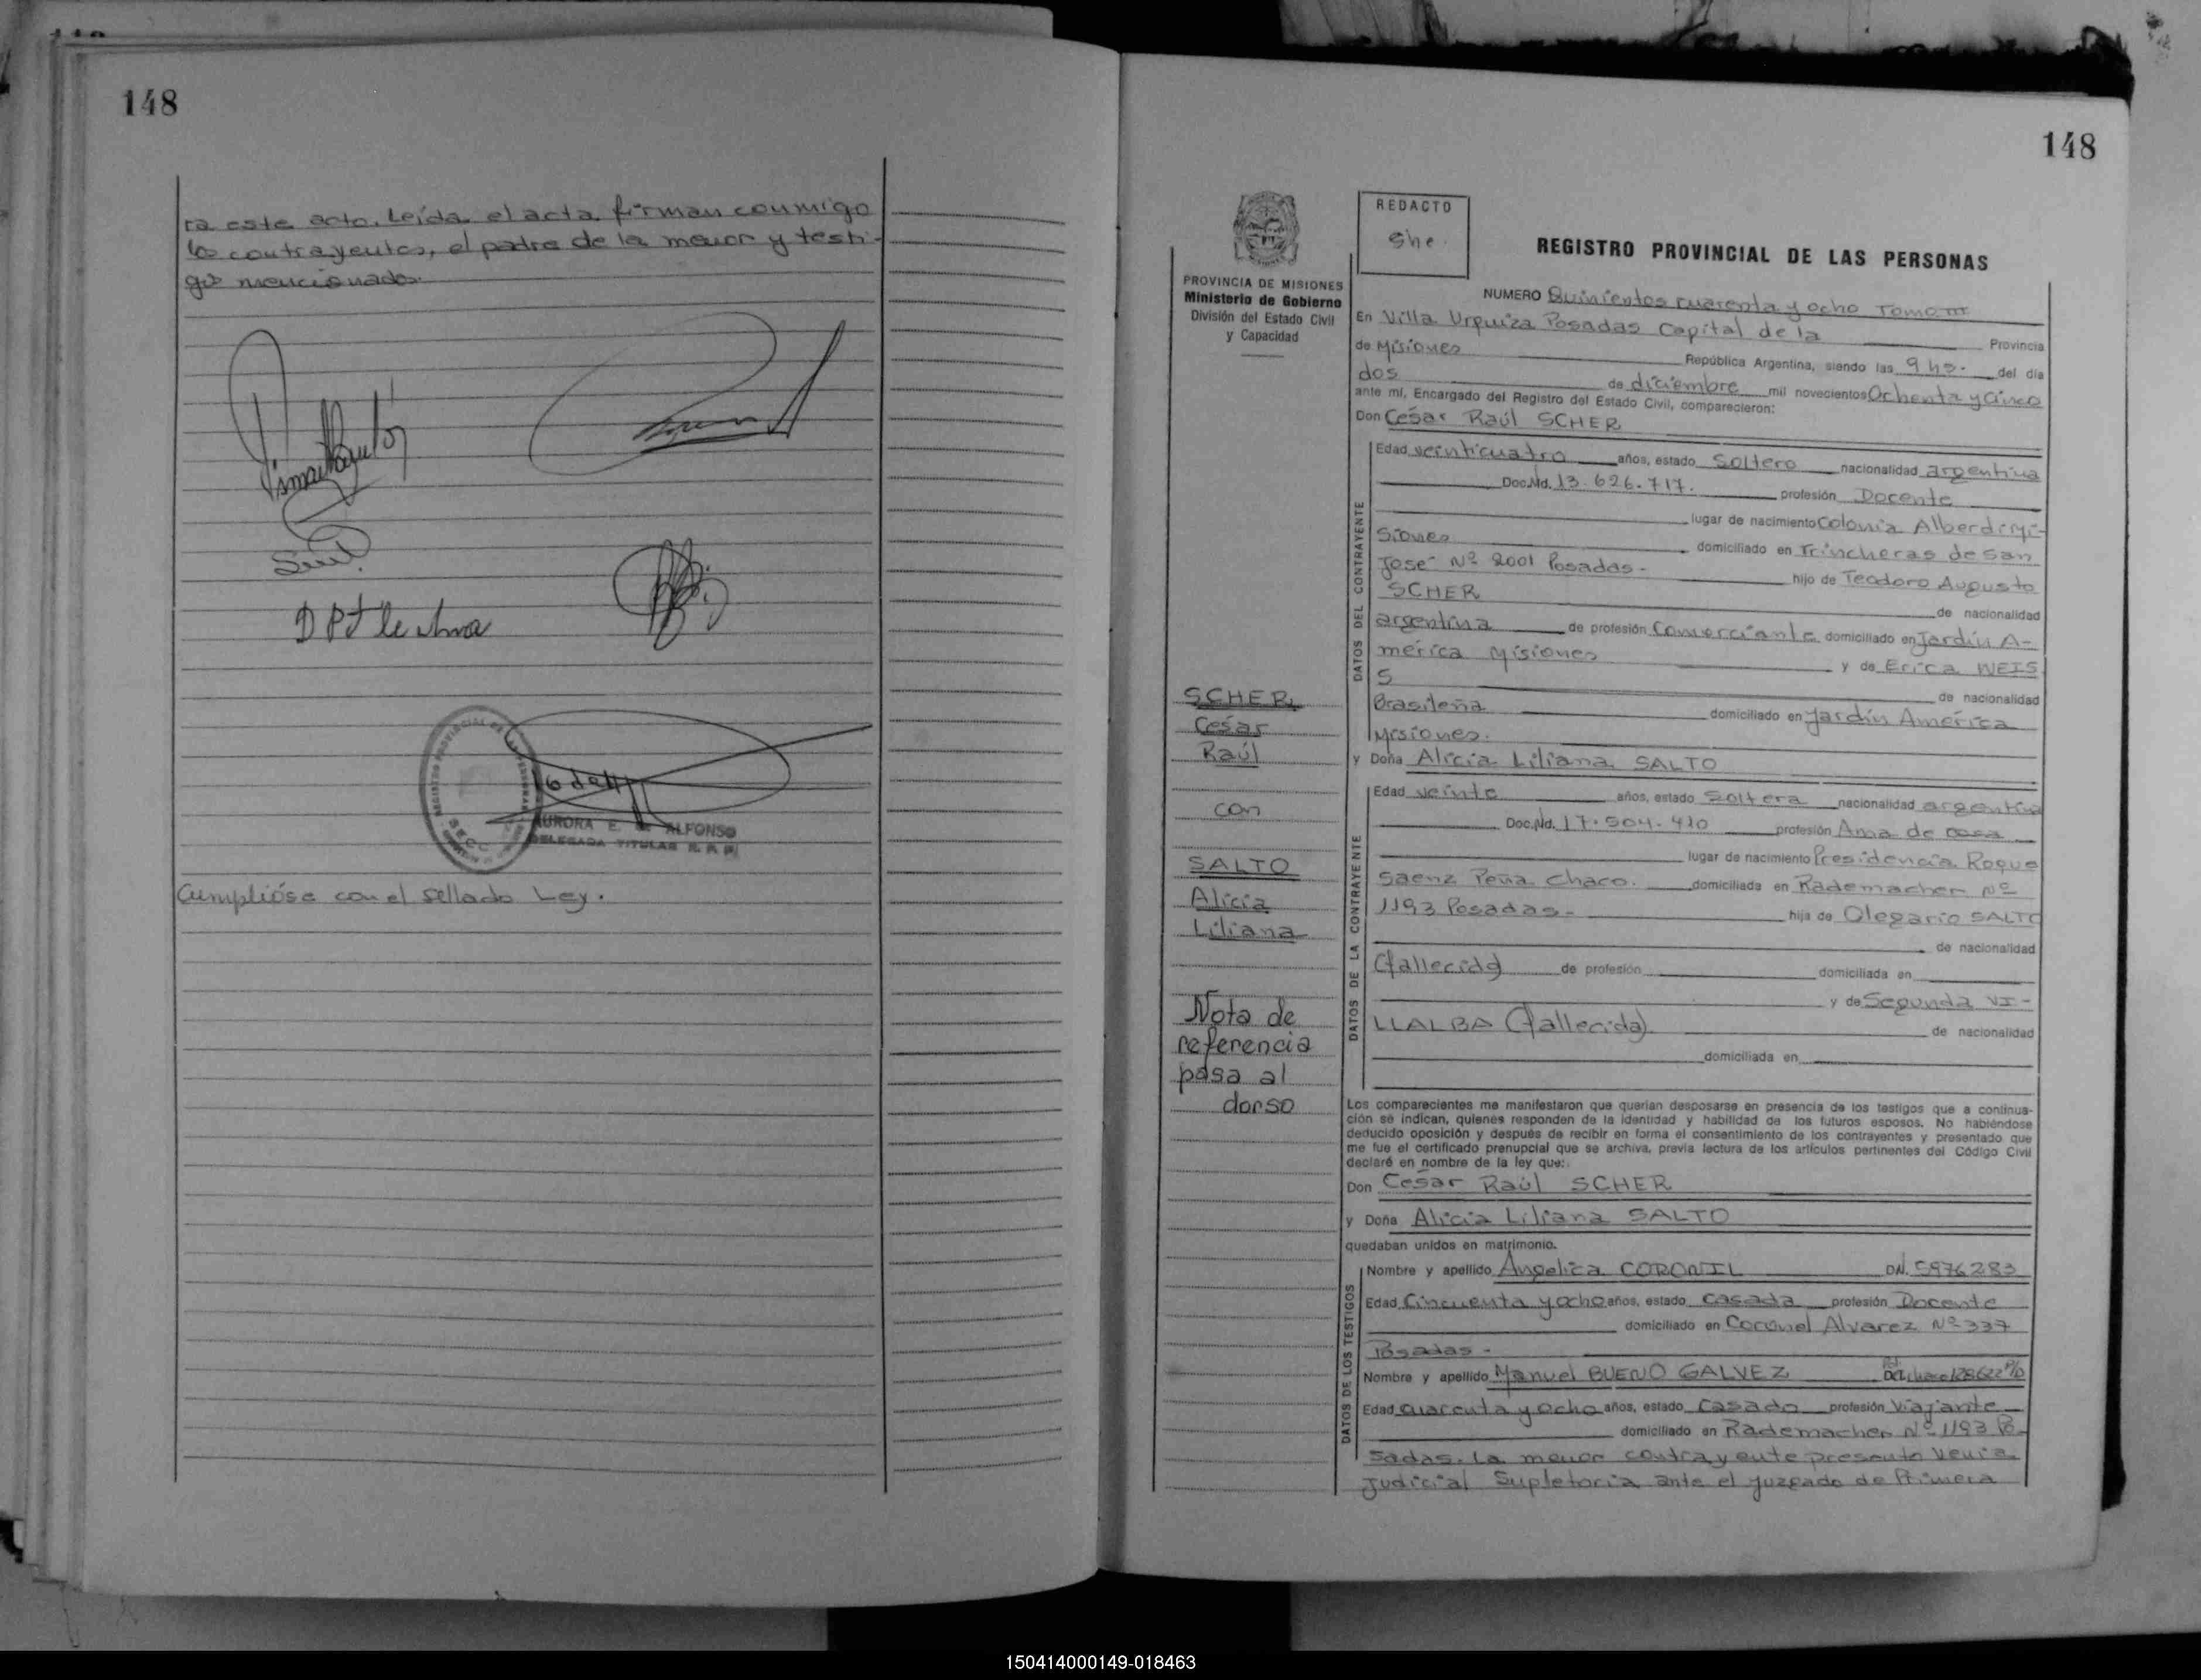 148
ra este acto. Leída el acta firman conmigo
los contrayentes, el padre de la menor y testi-
gos mencionados.
AURORA E. ALFONSO
DELEGADA TITULAR R. P. P.
Cumplióse con el sellado Ley.
148
REDACTO
She.
PROVINCIA DE MISIONES
Ministerio de Gobierno
División del Estado Civil
y Capacidad
REGISTRO PROVINCIAL DE LAS PERSONAS
NUMERO Quinientos cuarenta y ocho Tomo III
En Villa Urquiza Posadas Capital de la Provincia
de Misiones República Argentina, siendo las 9 hs. del día
dos de diciembre mil novecientos Ochenta y Cinco
ante mí, Encargado del Registro del Estado Civil, comparecieron:
Don César Raúl SCHER
DATOS DEL CONTRAYENTE
Edad veinticuatro años, estado Soltero nacionalidad argentina
Doc.Nd. 13.626.717. profesión Docente
lugar de nacimiento Colonia Alberdi Mi-
siones domiciliado en Trincheras de San
José Nº 2001 Posadas- hijo de Teodoro Augusto
SCHER de nacionalidad
argentina de profesión Comerciante domiciliado en Jardín A-
mérica Misiones y de Erica WEIS
S de nacionalidad
Brasileña domiciliado en Jardín América
Misiones.
y Doña Alicia Liliana SALTO
DATOS DE LA CONTRAYENTE
Edad veinte años, estado Soltera nacionalidad argentina
Doc.Nd. 17.504.410 profesión Ama de casa
lugar de nacimiento Presidencia Roque
Saenz Peña Chaco. domiciliada en Rademacher Nº
1193 Posadas- hija de Olegario SALTO
de nacionalidad
(fallecido) de profesión domiciliada en
y de Segunda VI-
LLALBA (fallecida) de nacionalidad
domiciliada en
SCHER
César
Raúl
con
SALTO
Alicia
Liliana
Nota de
referencia
pasa al
dorso
Los comparecientes me manifestaron que querían desposarse en presencia de los testigos que a continua-
ción se indican, quienes responden de la identidad y habilidad de los futuros esposos. No habiéndose
deducido oposición y después de recibir en forma el consentimiento de los contrayentes y presentado que
me fue el certificado prenupcial que se archiva, previa lectura de los artículos pertinentes del Código Civil
declaré en nombre de la ley que:
Don Cesar Raúl SCHER
y Doña Alicia Liliana SALTO
quedaban unidos en matrimonio.
DATOS DE LOS TESTIGOS
Nombre y apellido Angelica CORONIL DN. 5976283
Edad Cincuenta y ocho años, estado Casada profesión Docente
domiciliado en Coronel Alvarez Nº 337
Posadas-
Nombre y apellido Manuel BUENO GALVEZ
Edad cuarenta y ocho años, estado Casado profesión Viajante
domiciliado en Rademacher Nº 1193 Po-
sadas. La menor contrayente presento Venia
Judicial Supletoria ante el juzgado de Primera
150414000149-018463